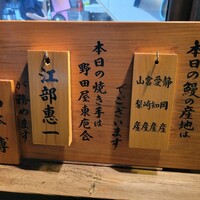 本日の鰻の産地は
静岡産
愛知産
宮崎産
山梨産
でございます
本日の焼き手は
野田屋東庖会
江部惠一